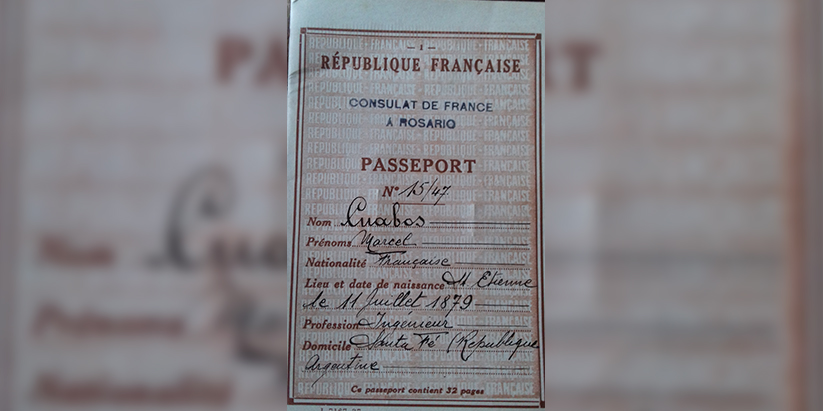 - 1 -
RÉPUBLIQUE FRANÇAISE
CONSULAT DE FRANCE
A ROSARIO
PASSEPORT
N° 15/47
Nom Cuabos
Prénoms Marcel
Nationalité Française
Lieu et date de naissance St Etienne
le 11 Juillet 1879
Profession Ingénieur
Domicile Santa Fé (République
Argentine
Ce passeport contient 32 pages